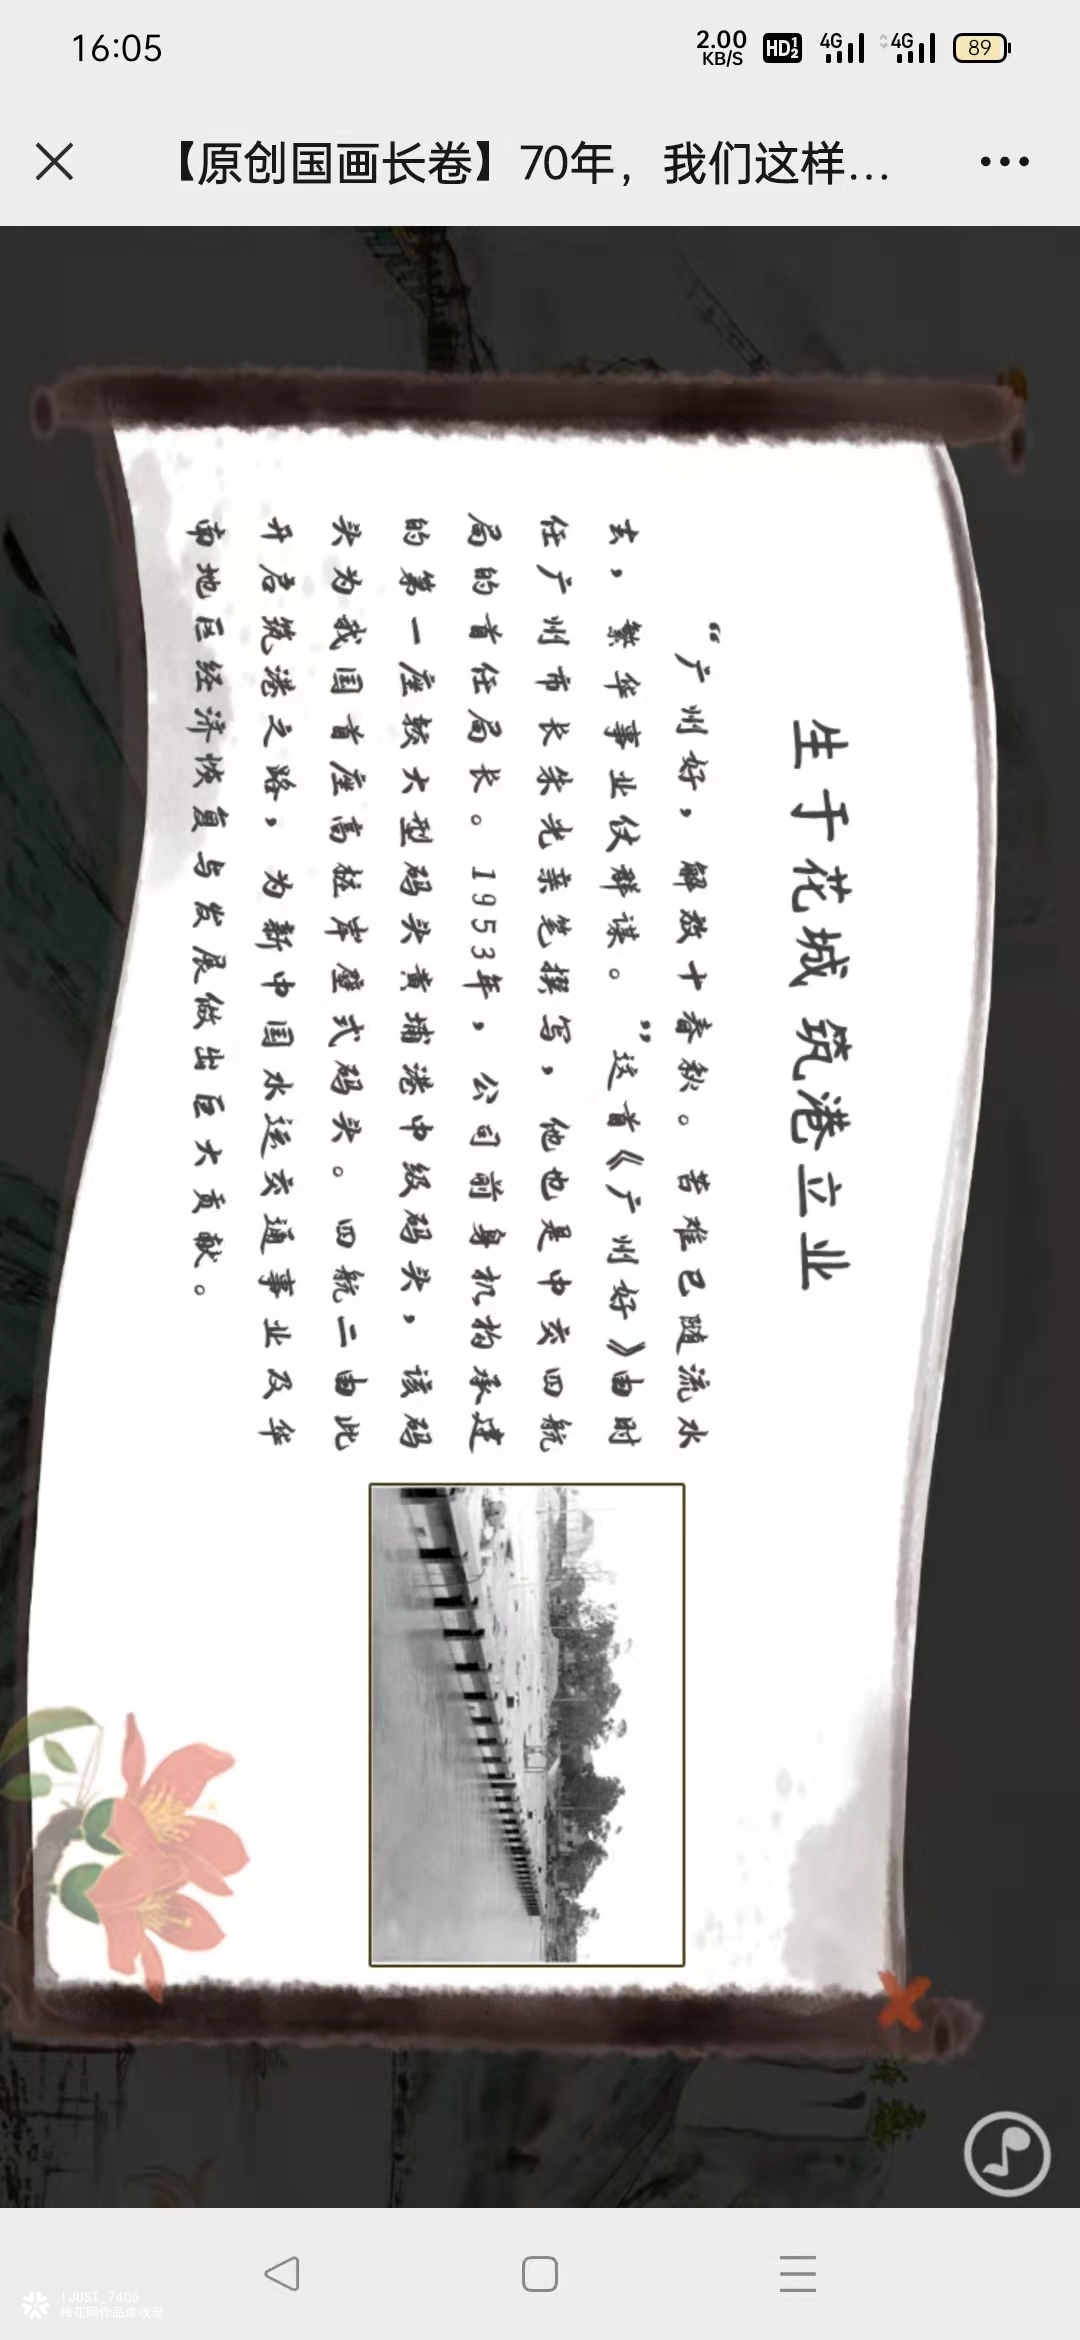 16:05
2.00
KB/S
HD 1 2
4G
4G
89
【原创国画长卷】70年，我们这样...
生于花城 筑港立业
“广州好，解放十春秋。苦难已随流水
去，繁华事业仗群谋。”这首《广州好》由时
任广州市长朱光亲笔撰写，他也是中交四航
局的首任局长。1953年，公司前身机构承建
的第一座较大型码头黄埔港中级码头，该码
头为我国首座高桩岸壁式码头。四航二由此
开启筑港之路，为新中国水运交通事业及华
南地区经济恢复与发展做出巨大贡献。
IJUST_7405
梅花网作品库收录